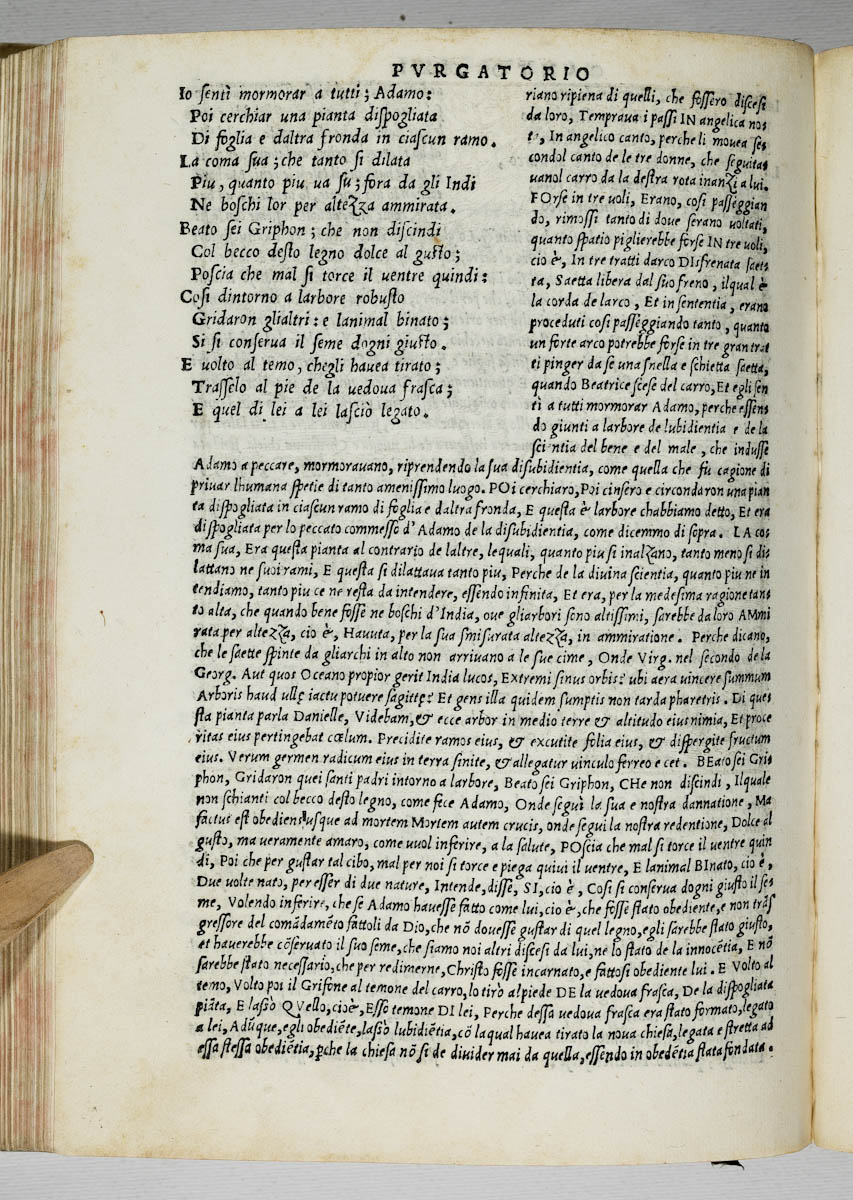 PVRGATORIO
Io sentì mormorar a tutti; Adamo:
Poi cerchiar una pianta dispogliata
Di foglia e daltra fronda in ciascun ramo.
La coma sua; che tanto si dilata
Piu, quanto piu ua su; fora da gli Indi
Ne boschi lor per altezza ammirata.
Beato sei Griphon; che non discindi
Col becco desto legno dolce al gusto;
Poscia che mal si torce il uentre quindi:
Cosi dintorno a larbore robusto
Gridaron glialtri: e lanimal binato;
Si si conserua il seme dogni giusto.
E uolto al temo, chegli hauea tirato;
Trasselo al pie de la uedoua frasca;
E quel di lei a lei lasciò legato.
riano ripiena di quelli, che fossero discesi
da loro, Tempraua i passi IN angelica nos
t, In angelico canto, perche li mouea se
condol canto de le tre donne, che seguita
uanol carro da la destra rota inanzi a lui.
FOrse in tre uoli, Erano, cosi passeggian
do, rimossi tanto di doue serano uoltati,
quanto spatio piglierebbe forse IN tre uoli,
cio è, In tre tratti darco DIsfrenata saet
ta, Saetta libera dal suo freno, ilqual è
la corda de larco, Et in sententia, erano
proceduti cosi passeggiando tanto, quanto
un forte arco potrebbe forse in tre gran trat
ti pinger da se una snella e schietta saetta,
quando Beatrice scese del carro, Et egli sen
tì a tutti mormorar Adamo, perche essen
do giunti a larbore de lubidientia e de la
scientia del bene e del male, che indusse
Adamo a peccare, mormorauano, riprendendo la sua disubidientia, come quella che fu cagione di
priuar lhumana spetie di tanto amenissimo luogo. POi cerchiaro, Poi cinsero e circondaron una pian
ta dispogliata in ciascun ramo di foglia e daltra fronda, E questa è larbore chabbiamo detto, Et era
dispogliata per lo peccato commesso d'Adamo de la disubidientia, come dicemmo di sopra. LA co
ma sua, Era questa pianta al contrario de laltre, lequali, quanto piu si inalzano, tanto meno si di
lattano ne suoi rami, E questa si dilattaua tanto piu, Perche de la diuina scientia, quanto piu ne in
tendiamo, tanto piu ce ne resta da intendere, essendo infinita, Et era, per la medesima ragione tan
to alta, che quando bene fosse ne boschi d'India, oue gliarbori sono altissimi, sarebbe da loro AMmi
rata per altezza, cio è, Hauuta, per la sua smisurata altezza, in ammiratione. Perche dicano,
che le saette spinte da gliarchi in alto non arriuano a le sue cime, Onde Virg. nel secondo de la
Georg. Aut quos Oceano propior gerit India lucos, Extremi sinus orbis? ubi aera uincere summum
Arboris haud ullę iactu potuere sagittę: Et gens illa quidem sumptis non tarda pharetris. Di que
sta pianta parla Danielle, Videbam, & ecce arbor in medio terre & altitudo eius nimia, Et proce
ritas eius pertingebat cœlum. Precidite ramos eius, & excutite folia eius, & dispergite fructum
eius. Verum germen radicum eius in terra sinite, & allegatur uinculo ferreo e cet. BEato sei Gri
phon, Gridaron quei santi padri intorno a larbore, Beato sei Griphon, CHe non discindi, Ilquale
non schianti col becco desto legno, come fece Adamo, Onde seguì la sua e nostra dannatione, Ma
factus est obediens usque ad mortem Mortem autem crucis, onde seguì la nostra redentione, Dolce al
gusto, ma ueramente amaro, come uuol inferire, a la salute, POscia che mal si torce il uentre quin
di, Poi che per gustar tal cibo, mal per noi si torce e piega quiui il uentre, E lanimal BInato, cio è,
Due uolte nato, per esser di due nature, Intende, disse, SI, cio è, Cosi si conserua dogni giusto il se
me, Volendo inferire, che se Adamo hauesse fatto come lui, cio è, che fosse stato obediente, e non trãs
gressore del comãdamẽto fattoli da Dio, che nõ douesse gustar di quel legno, egli sarebbe stato giusto,
et hauerebbe cõseruato il suo seme, che siamo noi altri discesi da lui, ne lo stato de la innocẽtia, E nõ
sarebbe stato necessario, che per redimerne, Christo fosse incarnato, e fattosi obediente lui. E Volto al
temo, Volto poi il Grifone al temone del carro, lo tirò al piede DE la uedoua frasca, De la dispogliata
piãta, E lassò QVello, cio è, Esso temone DI lei, Perche dessa uedoua frasca era stato formato, legato
a lei, Adũque, egli obediẽte, lassò lubidiẽtia, cõ la qual hauea tirato la noua chiesa, legata e stretta ad
essa stessa obediẽtia, ꝑche la chiesa nõ si de diuider mai da quella, essendo in obedẽtia stata fondata.